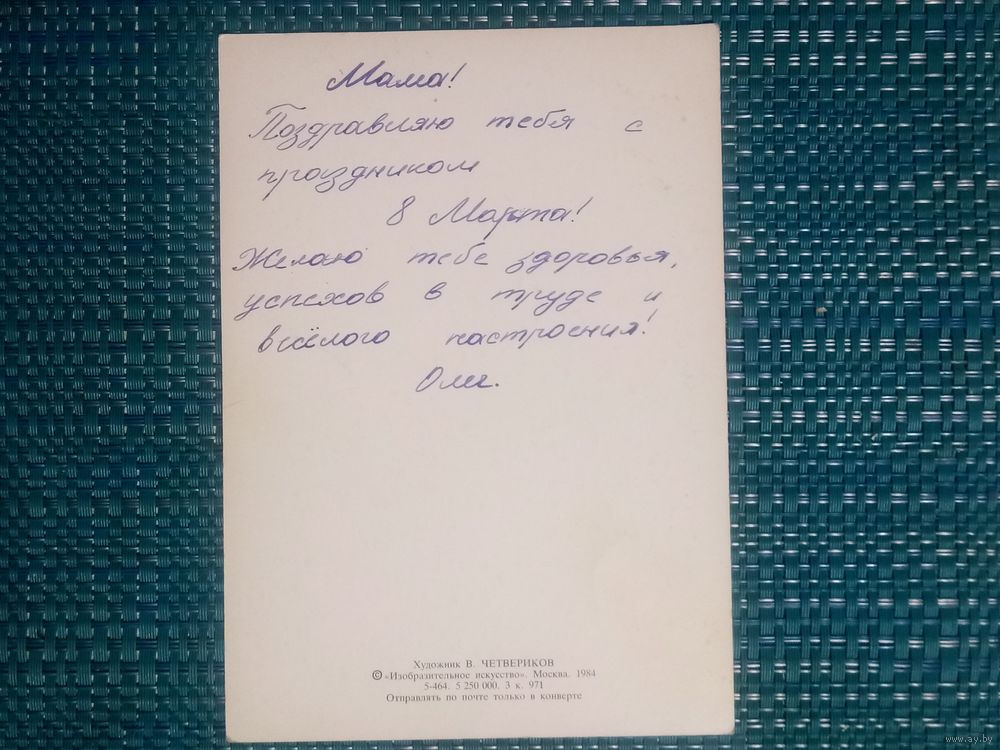 Мама!
Поздравляю тебя с
праздником
8 Марта!
Желаю тебе здоровья,
успехов в труде и
весёлого настроения!
Олег.
Художник В. ЧЕТВЕРИКОВ
© «Изобразительное искусство». Москва. 1984
5-464. 5 250 000. 3 к. 971
Отправлять по почте только в конверте
www.ay.by